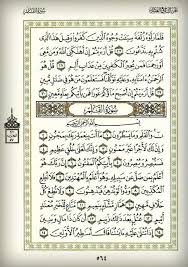 سورة القلم
الجزء التاسع والعشرون
فَلَمَّا رَأَوْهُ زُلْفَةً سِيٓـَٔتْ وُجُوهُ ٱلَّذِينَ كَفَرُوا۟ وَقِيلَ هَٰذَا ٱلَّذِى
كُنتُم بِهِۦ تَدَّعُونَ ٢٧ قُلْ أَرَءَيْتُمْ إِنْ أَهْلَكَنِىَ ٱللَّهُ وَمَن مَّعِىَ
أَوْ رَحِمَنَا فَمَن يُجِيرُ ٱلْكَٰفِرِينَ مِنْ عَذَابٍ أَلِيمٍ ٢٨ قُلْ هُوَ
ٱلرَّحْمَٰنُ ءَامَنَّا بِهِۦ وَعَلَيْهِ تَوَكَّلْنَا فَسَتَعْلَمُونَ مَنْ هُوَ فِى ضَلَٰلٍ
مُّبِينٍ ٢٩ قُلْ أَرَءَيْتُمْ إِنْ أَصْبَحَ مَآؤُكُمْ غَوْرًا فَمَن يَأْتِيكُم بِمَآءٍ مَّعِينٍۭ ٣٠
سُورَةُ القَلَمِ
بِسْمِ ٱللَّهِ ٱلرَّحْمَٰنِ ٱلرَّحِيمِ
نٓ وَٱلْقَلَمِ وَمَا يَسْطُرُونَ ١ مَآ أَنتَ بِنِعْمَةِ رَبِّكَ بِمَجْنُونٍ ٢ وَإِنَّ
لَكَ لَأَجْرًا غَيْرَ مَمْنُونٍ ٣ وَإِنَّكَ لَعَلَىٰ خُلُقٍ عَظِيمٍ ٤
فَسَتُبْصِرُ وَيُبْصِرُونَ ٥ بِأَييِّكُمُ ٱلْمَفْتُونُ ٦ إِنَّ رَبَّكَ هُوَ أَعْلَمُ
بِمَن ضَلَّ عَن سَبِيلِهِۦ وَهُوَ أَعْلَمُ بِٱلْمُهْتَدِينَ ٧ فَلَا تُطِعِ
ٱلْمُكَذِّبِينَ ٨ وَدُّوا۟ لَوْ تُدْهِنُ فَيُدْهِنُونَ ٩ وَلَا تُطِعْ كُلَّ
حَلَّافٍ مَّهِينٍ ١٠ هَمَّازٍ مَّشَّآءٍۭ بِنَمِيمٍ ١١ مَّنَّاعٍ لِّلْخَيْرِ مُعْتَدٍ
أَثِيمٍ ١٢ عُتُلٍّۭ بَعْدَ ذَٰلِكَ زَنِيمٍ ١٣ أَن كَانَ ذَا مَالٍ وَبَنِينَ
١٤ إِذَا تُتْلَىٰ عَلَيْهِ ءَايَٰتُنَا قَالَ أَسَٰطِيرُ ٱلْأَوَّلِينَ ١٥
٥٦٤